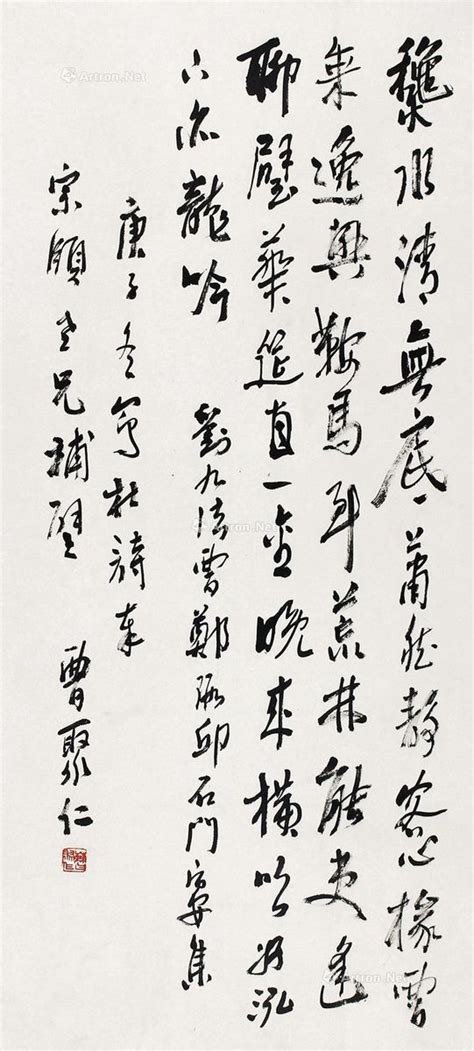 龝水清無底蕭然静客心掾曹
乘逸興鞍馬到荒林能吏逢
聯璧華筵直一金晚来横吹好泓
下亦龍吟 劉九法曹鄭瑕邱石門宴集
庚子冬寫杜詩奉
宗頤老兄補壁 曹聚仁
Artron.Net